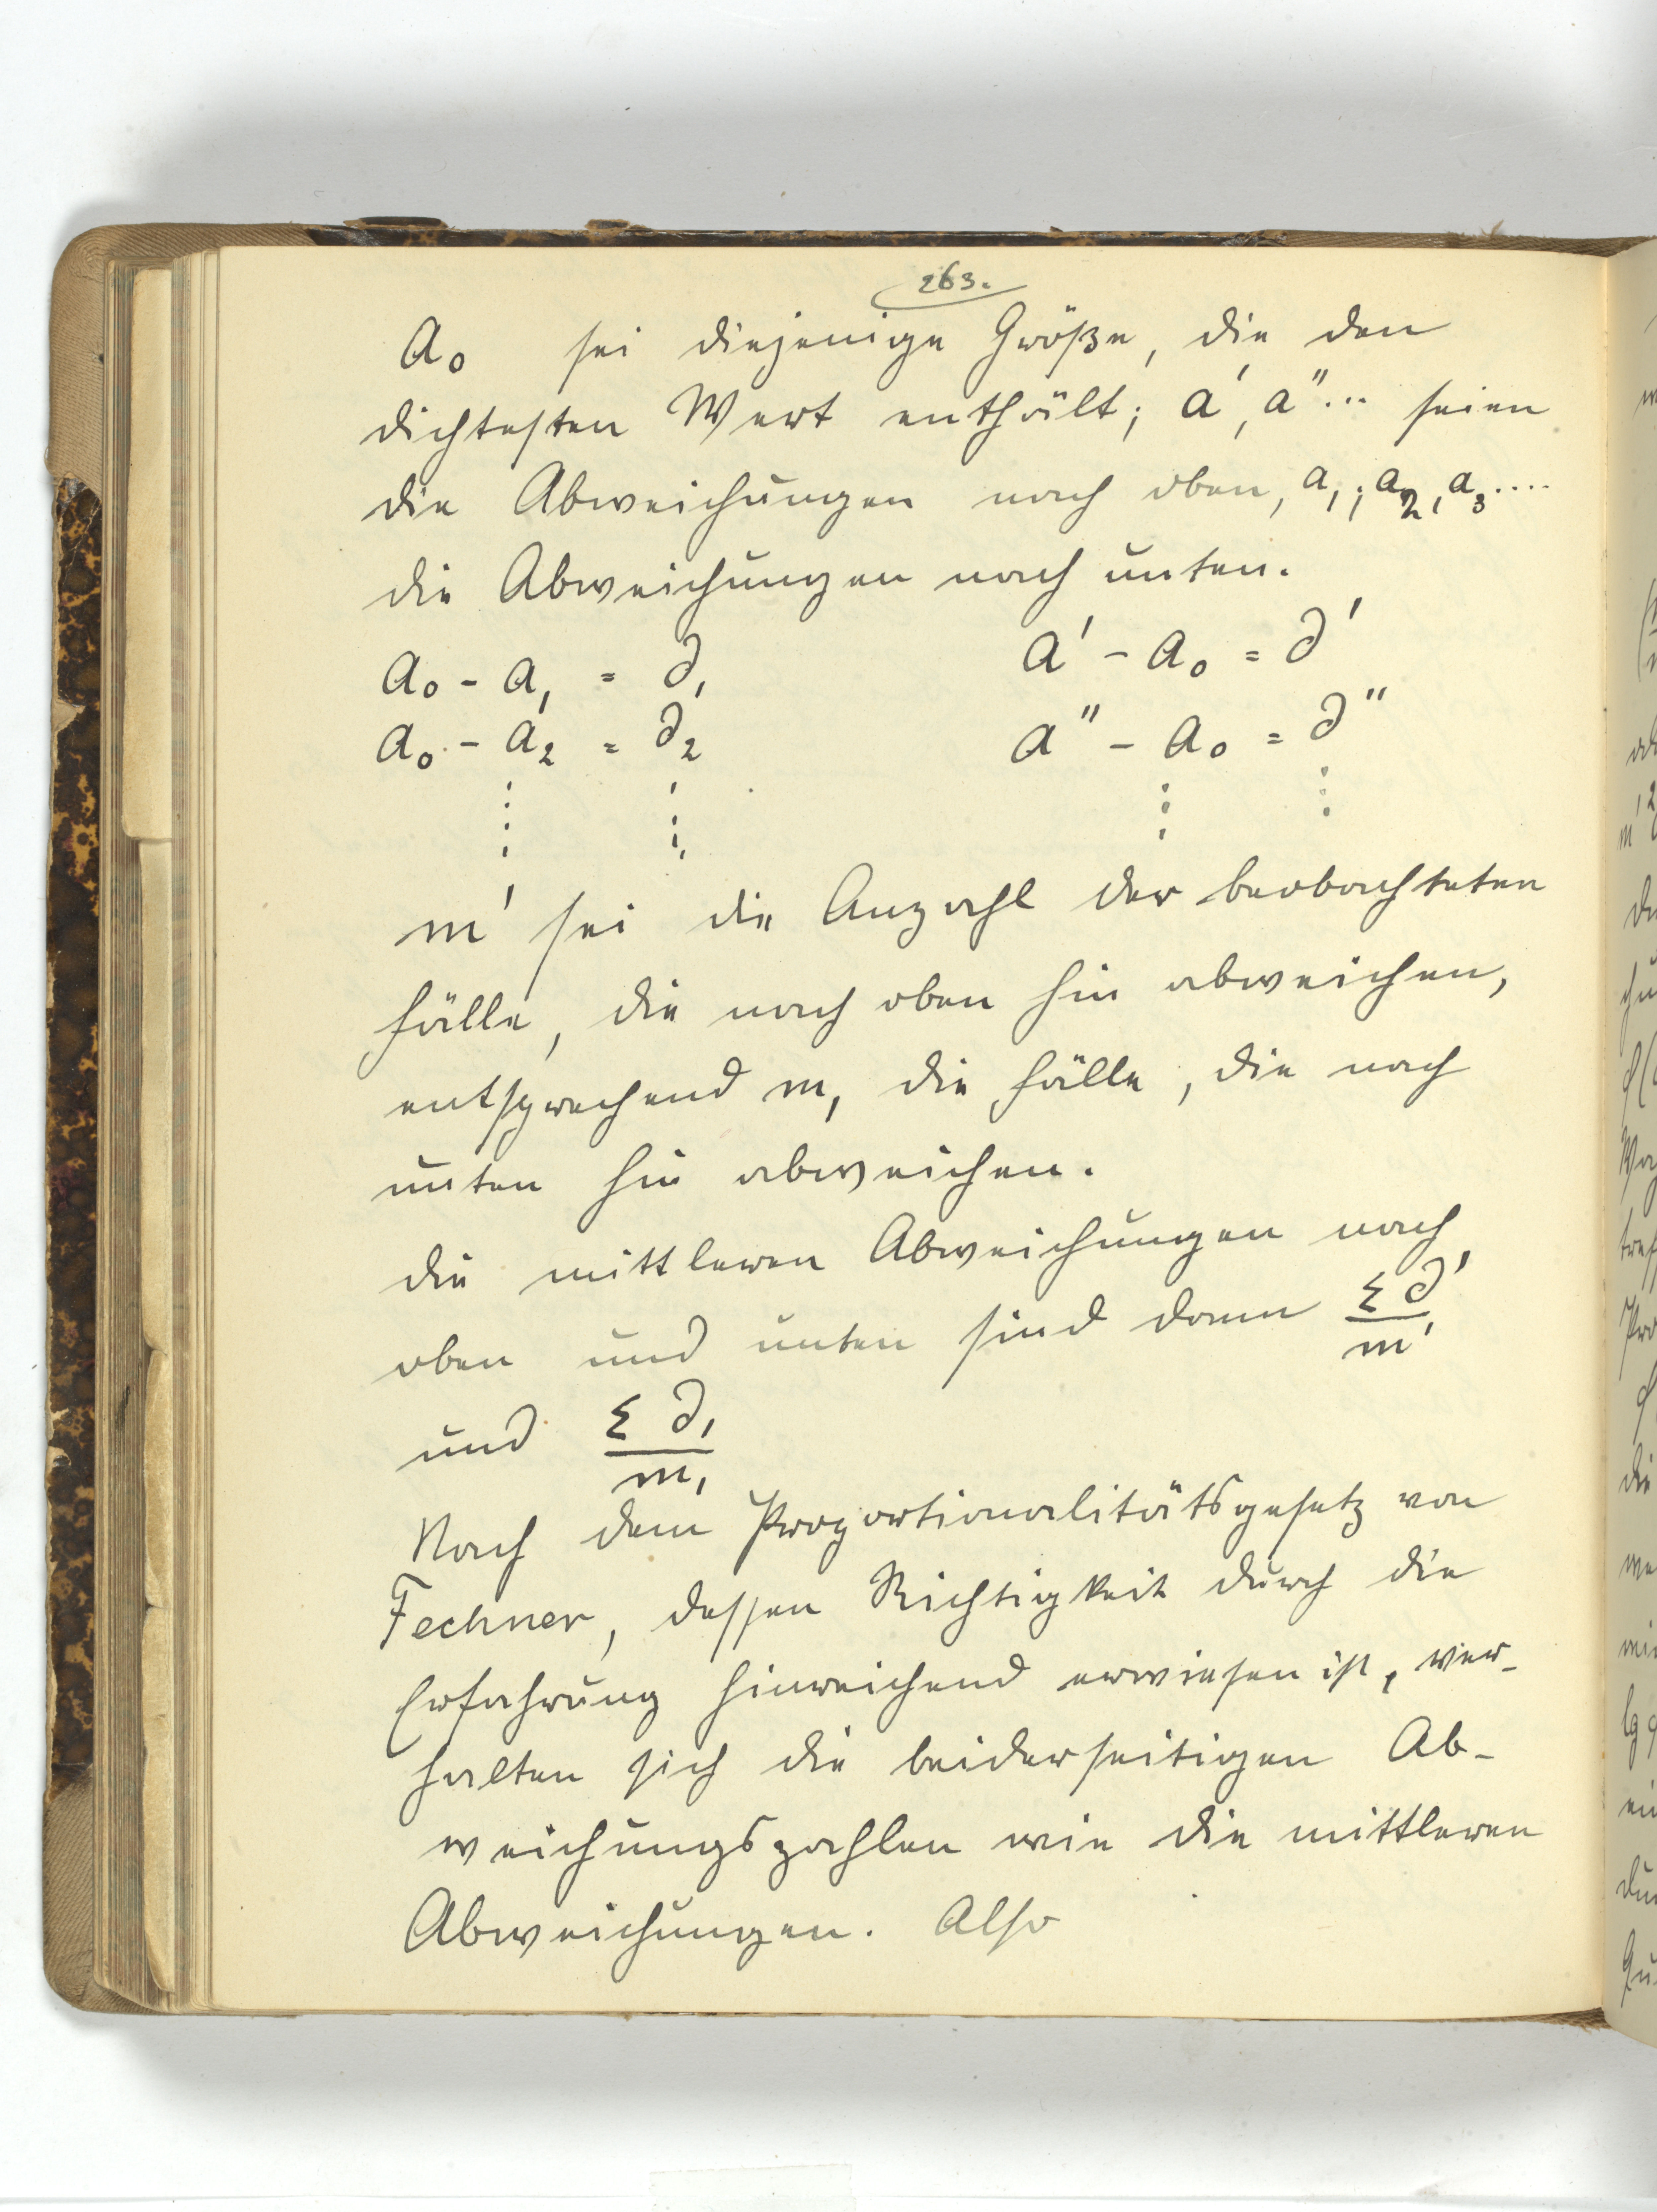 263.
a₀ sei diejenige Größe, die den
dichtesten Wert enthält; a', a''... seien
die Abweichungen nach oben, a₁; a₂, a₃....
die Abweichungen nach unten.
a₀ - a₁ = ∂₁ a' - a₀ = ∂'
a₀ - a₂ = ∂₂ a'' - a₀ = ∂''
⋮ ⋮ ⋮ ⋮
m' sei die Anzahl der beobachteten
Fälle, die nach oben hin abweichen,
entsprechend m, die Fälle, die nach
unten hin abweichen.
Die mittleren Abweichungen nach
oben und unten sind dann Σ∂'/m'
und Σ∂,/m,
Nach dem Proportionalitätsgesetz von
Fechner, dessen Richtigkeit durch die
Erfahrung hinreichend erwiesen ist, ver-
halten sich die beiderseitigen Ab-
weichungszahlen wie die mittleren
Abweichungen. Also